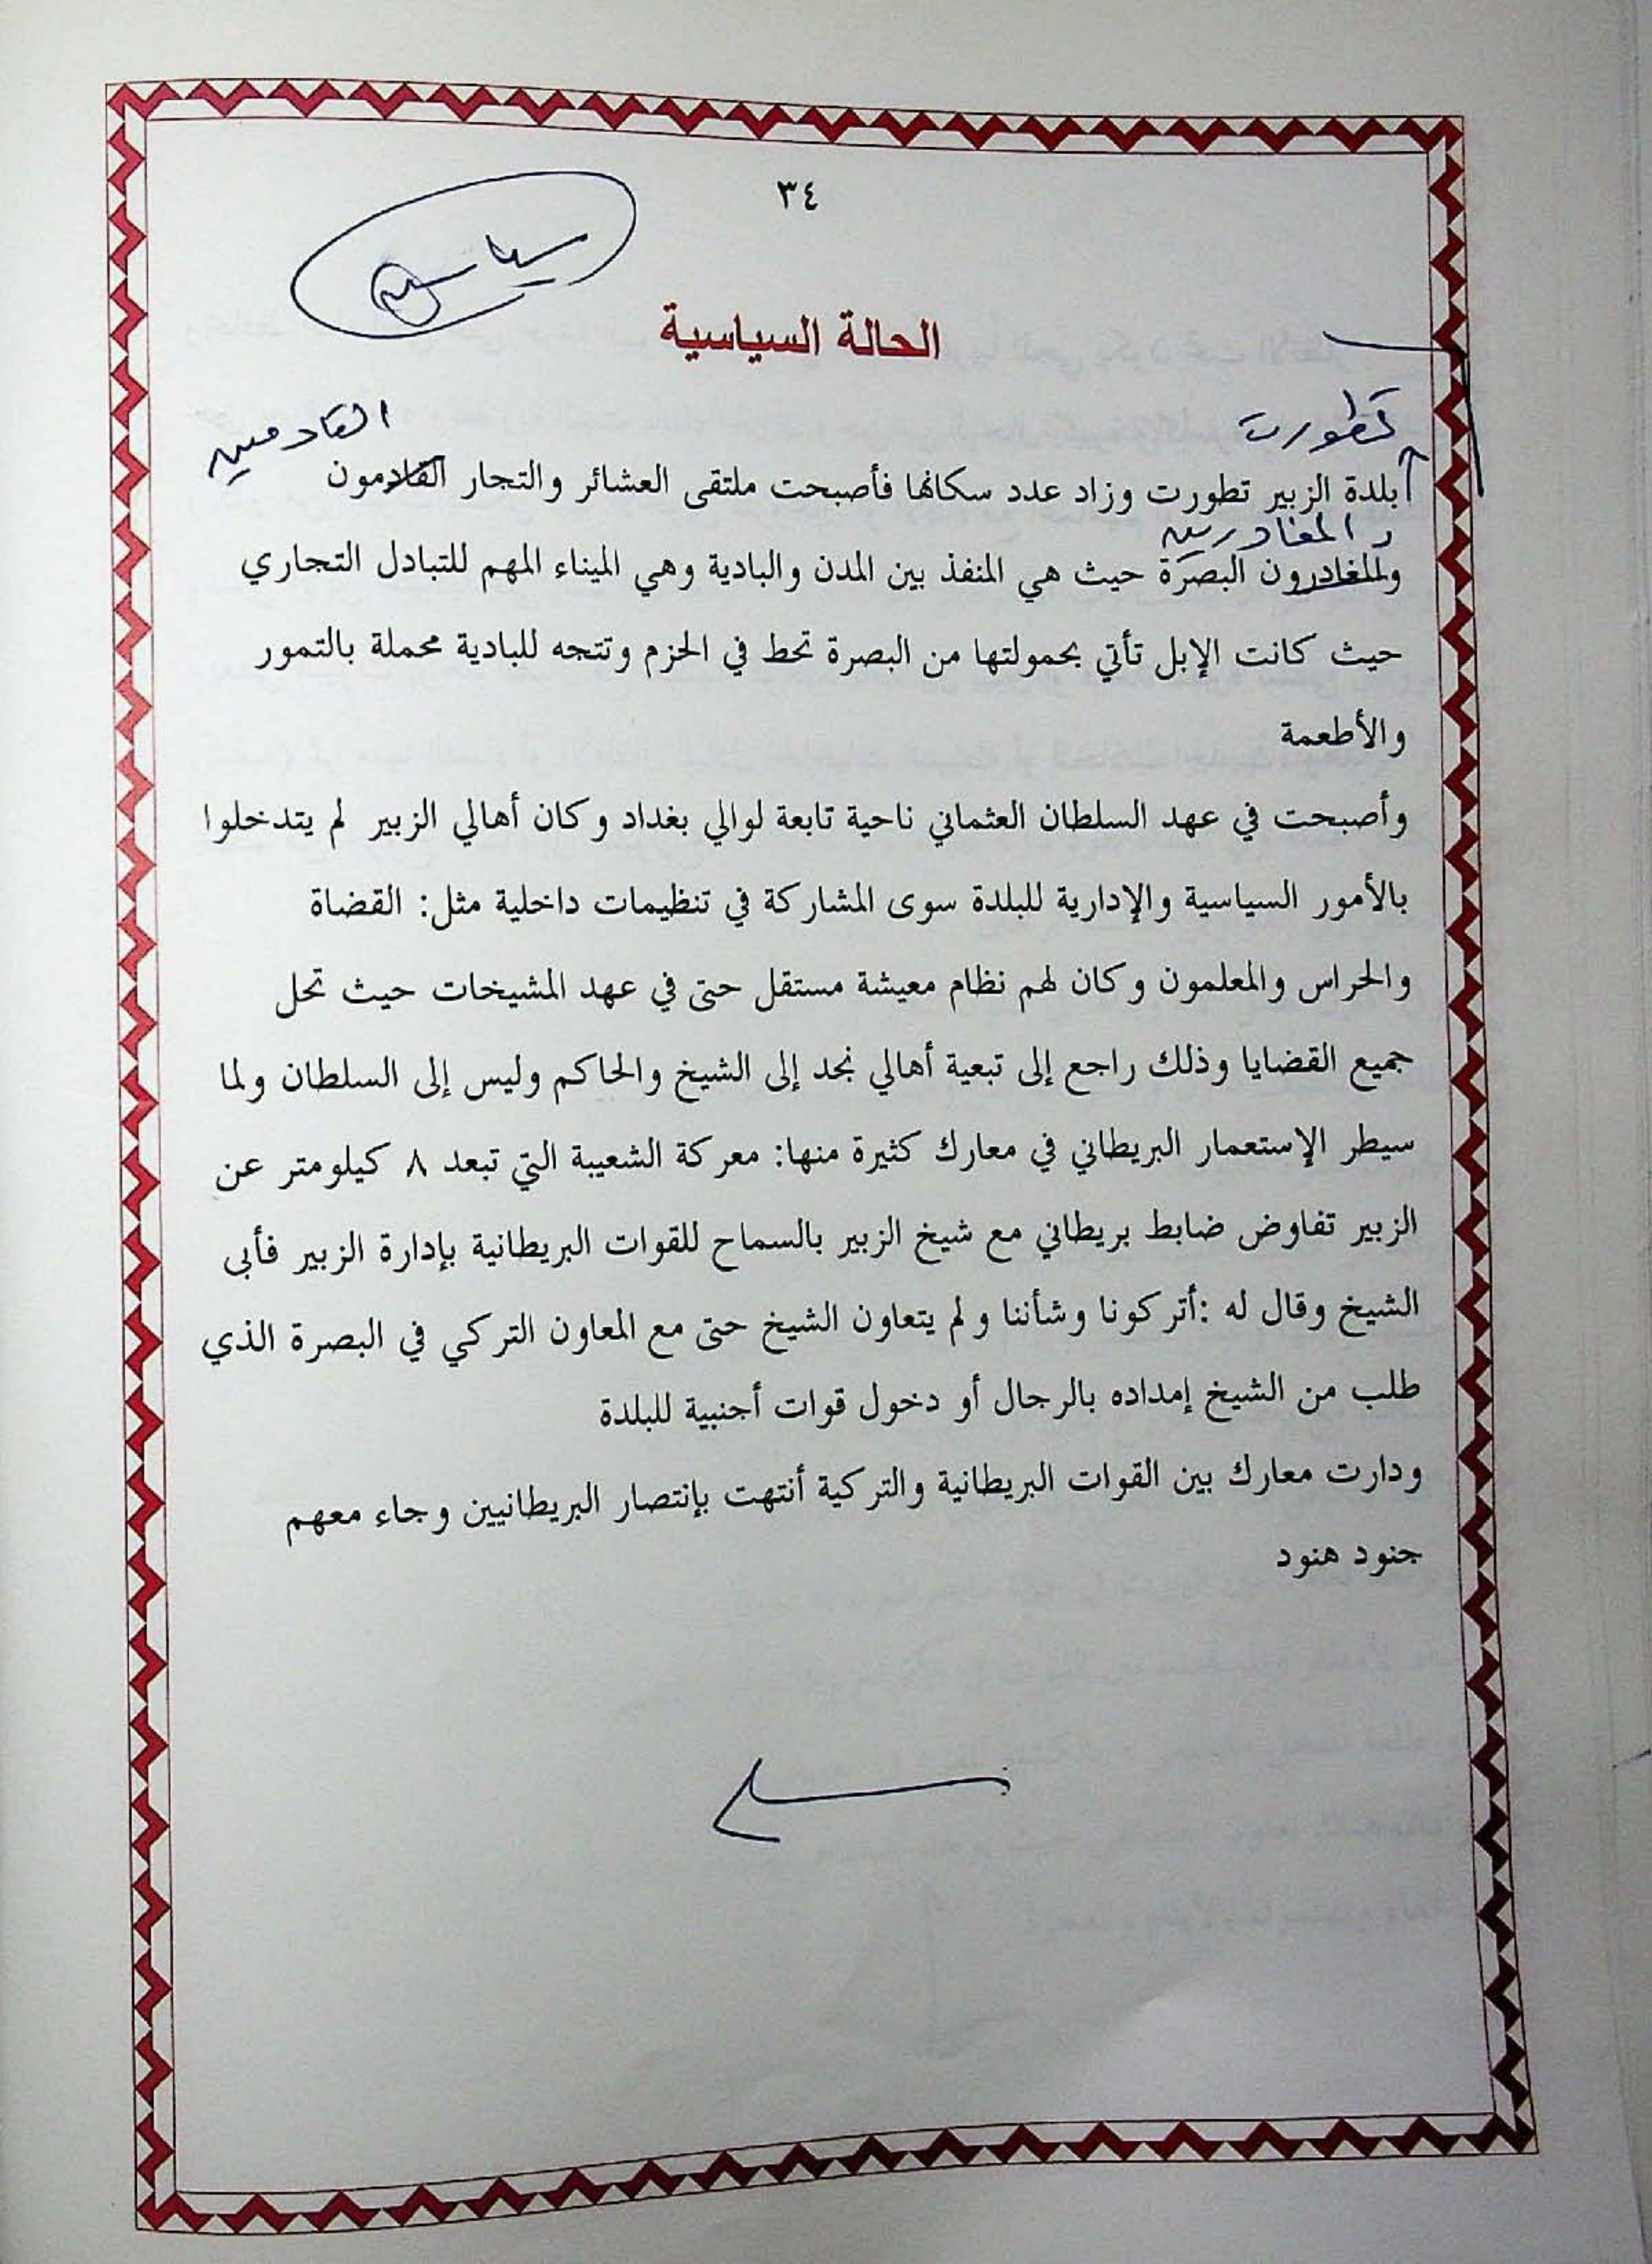 ٣٤
سياسية
الحالة السياسية
تطورت
القادمين
بلدة الزبير تطورت وزاد عدد سكانها فأصبحت ملتقى العشائر والتجار القادمون
والمغادرين
والمغادرون البصرة حيث هي المنفذ بين المدن والبادية وهي الميناء المهم للتبادل التجاري
حيث كانت الإبل تأتي بحمولتها من البصرة تحط في الحزم وتتجه للبادية محملة بالتمور
والأطعمة
وأصبحت في عهد السلطان العثماني ناحية تابعة لوالي بغداد وكان أهالي الزبير لم يتدخلوا
بالأمور السياسية والإدارية للبلدة سوى المشاركة في تنظيمات داخلية مثل: القضاة
والحراس والمعلمون وكان لهم نظام معيشة مستقل حتى في عهد المشيخات حيث تحل
جميع القضايا وذلك راجع إلى تبعية أهالي نجد إلى الشيخ والحاكم وليس إلى السلطان ولما
سيطر الإستعمار البريطاني في معارك كثيرة منها: معركة الشعيبة التي تبعد ٨ كيلومتر عن
الزبير تفاوض ضابط بريطاني مع شيخ الزبير بالسماح للقوات البريطانية بإدارة الزبير فأبى
الشيخ وقال له :أتركونا وشأننا ولم يتعاون الشيخ حتى مع المعاون التركي في البصرة الذي
طلب من الشيخ إمداده بالرجال أو دخول قوات أجنبية للبلدة
ودارت معارك بين القوات البريطانية والتركية أنتهت بإنتصار البريطانيين وجاء معهم
جنود هنود